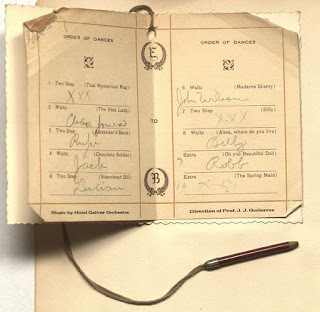 ORDER OF DANCES
1 Two Step (That Mysterious Rag)
XXX
2 Waltz (The Pink Lady)
3 Two Step (Alexander's Band)
4 Waltz (Chocolate Soldier)
Jack
5 Two Step (Steamboat Bill)
Lillian
Music by Hotel Galvez Orchestra
E
TO
B
ORDER OF DANCES
6 Waltz (Madame Sherry)
John Wilson
7 Two Step (Billy)
XXX
8 Waltz (Alma, where do you live)
Billy
Extra (Oh you Beautiful Doll)
Robb
Extra (The Spring Maid)
Direction of Prof. J. J. Gutierres